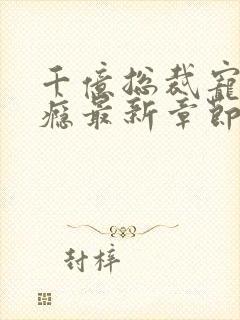 千億総裁寵
癮最新章節
封梓